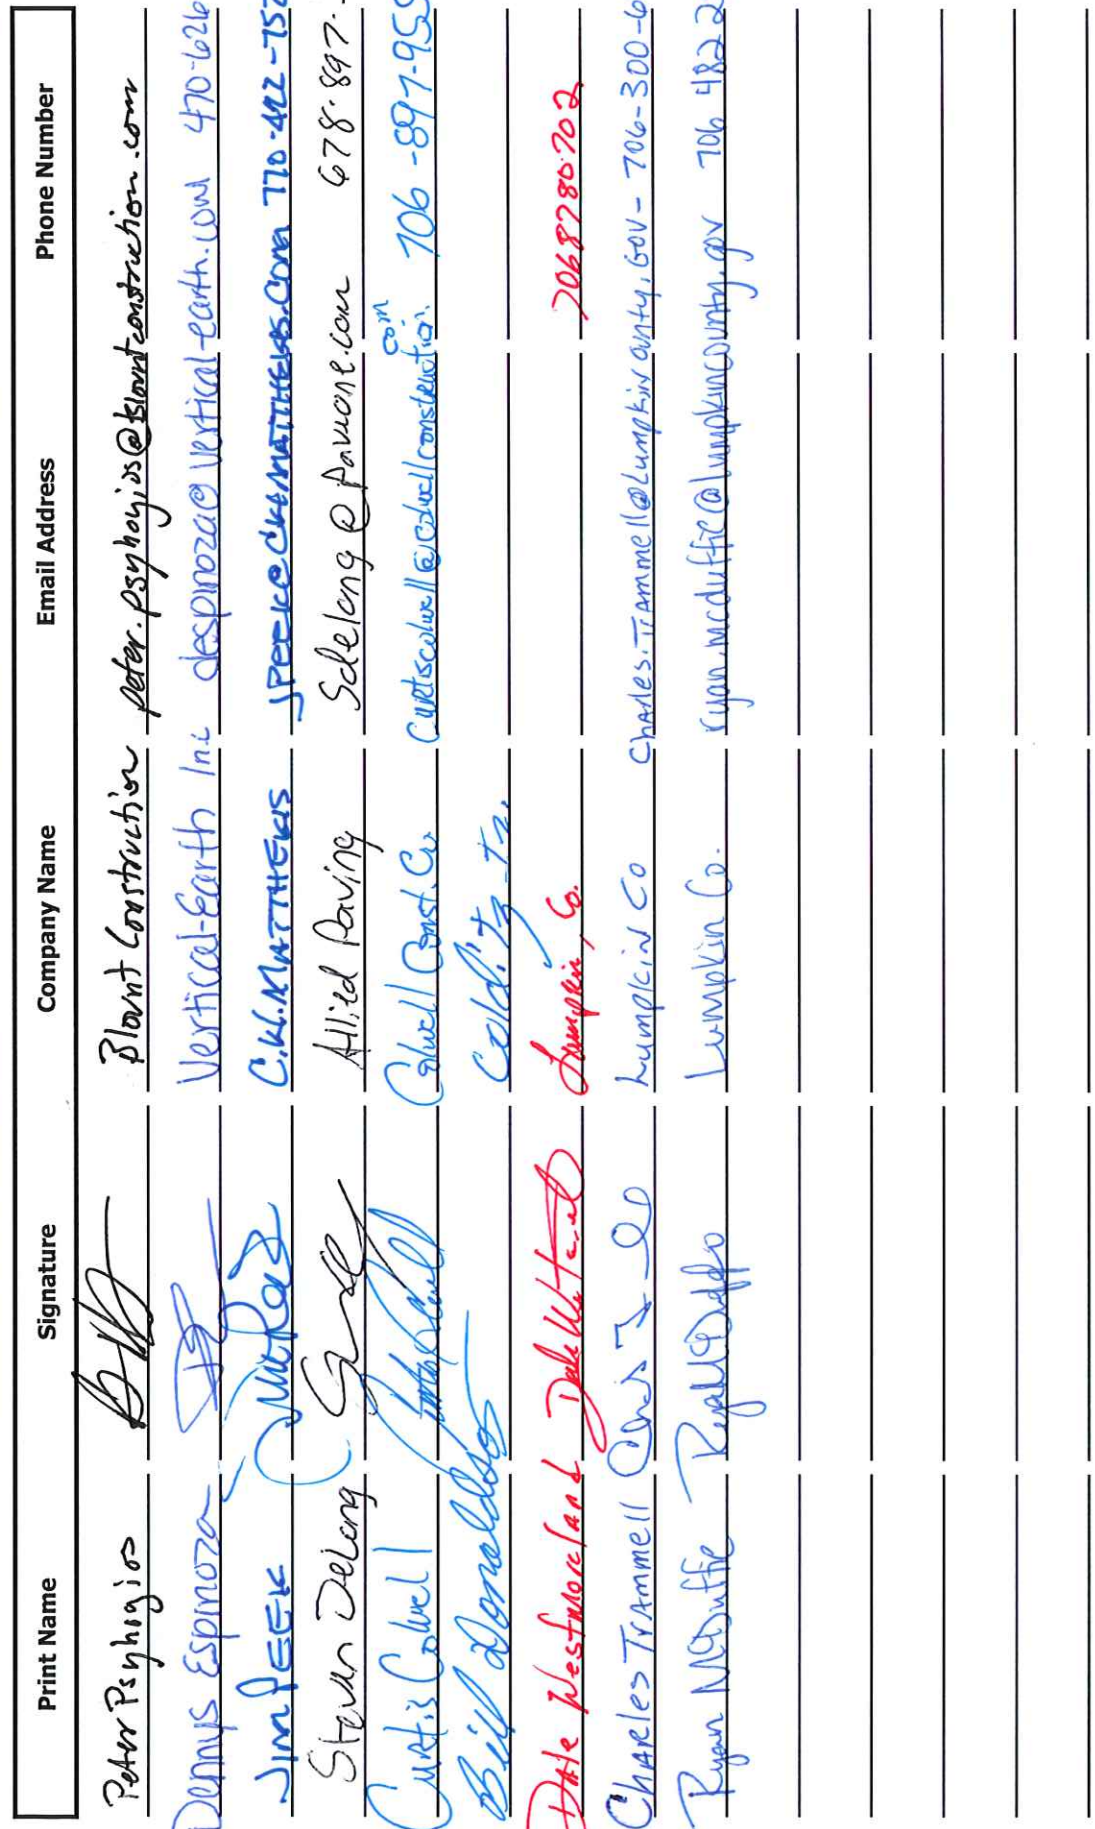 Print Name Signature Company Name Email Address Phone Number
Peter Psyhogios Blount Construction peter.psyhoyios@blountconstruction.com
Dennys Espinoza Vertical-Earth Inc despinoza@vertical-earth.com 470-626
Jim PEEK C.W. MATTHEWS JPEEK@CWMATTHEWS.Com 770-422-752
Steven DeLong Allied Paving Sdelong@pavione.com 678-897-
Curtis Colwell Colwell Const. Co curtiscolwell@colwellconstruction.com 706-897-955
Bill Donaldson
Dale Westmoreland Dale Lumpkin, Co. 7068780702
CHARles TrAmmell Lumpkin Co CHARles.TrAmmell@Lumpkincounty.GOV- 706-300-6
Ryan McDuffie Lumpkin Co. ryan.mcduffie@lumpkincounty.gov 706 482 2